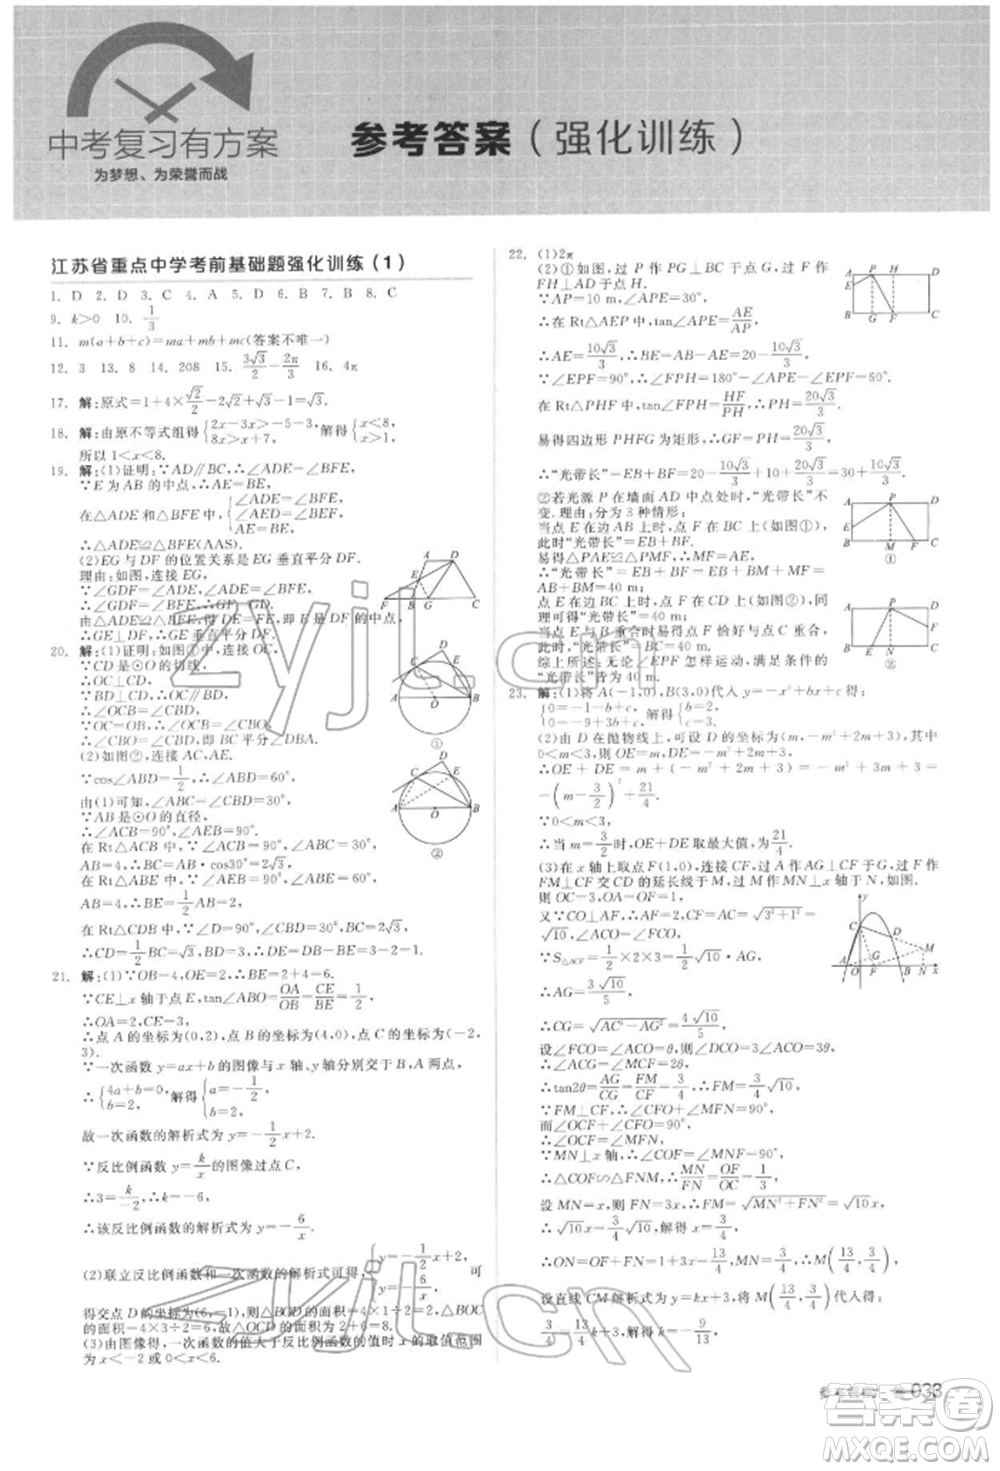 中考复习有方案
为梦想、为荣誉而战
参考答案(强化训练)
江苏省重点中学考前基础题强化训练(1)
1. D 2. D 3. C 4. A 5. D 6. B 7. B 8. C
9. k>0 10. 1/3
11. m(a+b+c)=ma+mb+mc(答案不唯一)
12. 3 13. 8 14. 208 15. 3√3/2-2π/3 16. 4π
17. 解:原式=1+4×√2/2-2√2+√3=1+√3.
18. 解:由原不等式组得{2x-3x>-5-3, 8x>x+7, 解得{x<8, x>1.
所以 1<x<8.
19. 解:(1)证明:∵AD∥BC,∴∠ADE=∠BFE,
∵E为AB的中点,∴AE=BE,
在△ADE和△BFE中,{∠ADE=∠BFE, ∠AED=∠BEF, AE=BE,
∴△ADE≌△BFE(AAS).
(2)EG与DF的位置关系是EG垂直平分DF.
理由:如图,连接EG,
∵∠GDF=∠ADE,∠ADE=∠BFE,
∴∠GDF=∠BFE,∴GF=GD.
由(1)△ADE≌△BFE得DE=FE,即GE为DF上的中点,
∴GE⊥DF,∴GE垂直平分DF.
20. 解:(1)证明:如图①,连接OC,
∵CD是⊙O的切线,
∴OC⊥CD,
∵BD⊥CD,∴OC∥BD,
∴∠OCB=∠CBD.
∵OC=OB,∴∠OCB=∠CBO,
∴∠CBO=∠CBD,即BC平分∠DBA.
(2)如图②,连接AC,AE.
∵cos∠ABD=1/2,∴∠ABD=60°,
由(1)可知,∠ABC=∠CBD=30°.
∵AB为⊙O的直径,
∴∠ACB=90°,∠AEB=90°.
在Rt△ACB中,∠ACB=90°,∠ABC=30°,
AB=4,∴BC=AB·cos30°=2√3.
在Rt△ABE中,∠AEB=90°,∠BAE=30°,
AB=4,∴BE=1/2AB=2,
在Rt△CDB中,∠D=90°,∠CBD=30°,BC=2√3,
∴CD=1/2BC=√3,BD=3,∴DE=BD-BE=3-2=1.
21. 解:(1)∵OB=4,OE=2,∴BE=2+4=6.
∵CE⊥x轴于点E,tan∠ABO=OA/OB=CE/BE=1/2,
∴OA=2,CE=3,
∴点A的坐标为(0,2),点B的坐标为(4,0),点C的坐标为(-2,
3).
∵一次函数y=ax+b的图像与x轴,y轴分别交于B,A两点,
∴{4a+b=0, b=2, 解得{a=-1/2, b=2.
故一次函数的解析式为y=-1/2x+2.
∵反比例函数y=k/x的图像过点C,
∴3=k/-2,∴k=-6,
∴该反比例函数的解析式为y=-6/x.
(2)联立反比例函数和一次函数的解析式可得{y=-1/2x+2, y=-6/x, 可
得交点D的坐标为(6,-1),则△BOD的面积=4×1÷2=2,△BOC
的面积=4×3÷2=6,故△OCD的面积为2+6=8.
(3)由图像得,一次函数的值大于反比例函数的值时x的取值范围
为x<-2或0<x<6.
22. (1)2π
(2)①如图,过点P作PG⊥BC于点G,过点F作
FH⊥AD于点H.
∵AP=10 m,∠APE=30°,
∴在Rt△AEP中,tan∠APE=AE/AP,
∴AE=10√3/3,∴BE=AB-AE=20-10√3/3,
∵∠EPF=90°,∴∠FPH=180°-∠APE-∠EPF=60°.
在Rt△PHF中,tan∠FPH=HF/PH,∴PH=20√3/3,
易得四边形PHFG为矩形,∴GF=PH=20√3/3,
∴“光带长”=EB+BF=20-10√3/3+10+20√3/3=30+10√3/3.
②若光源P在墙面AD中点处时,“光带长”不
变.理由:分为3种情形:
当点E在边AB上时,点F在BC上(如图①),
易得△PAE≌△PMF,∴AE=MF,
∴“光带长”=EB+BF=EB+BM+MF=
AB+BM=40 m;
当点E在边BC上时,点F在CD上(如图②),
同理可得“光带长”=40 m;
当点E与B重合时易得点F恰好与点C重合,
此时“光带长”=BC=40 m.
综上所述:无论∠EPF怎样运动,满足条件的
“光带长”为定值40 m.
23. 解:(1)将A(-1,0),B(3,0)代入y=-x²+bx+c得:
{0=-1-b+c, 0=-9+3b+c, 解得{b=2, c=3.
(2)由D在抛物线上,可设D的坐标为(m,-m²+2m+3),其中
0<m<3,则OE=m,DE=-m²+2m+3,
∴OE+DE=m-m²+2m+3=-m²+3m+3=
-(m-3/2)²+21/4,
∵0<m<3,
∴当m=3/2时,OE+DE取最大值,为21/4.
(3)在x轴上取点F(1,0),连接CF,过A作AG⊥CF于G,过F作
FM⊥CF交CD的延长线于M,过M作MN⊥x轴于N,如图.
则OC=3,OA=OF=1.
又∵CO⊥AF,∴AF=2,CF=AC=√(3²+1²)=
√10,∠ACO=∠FCO.
∵S△ACF=1/2×2×3=1/2×√10·AG,
∴AG=3√10/5,
∴CG=√(AC²-AG²)=4√10/5.
设∠FCO=∠ACO=θ,则∠DCO=3θ,
∴∠ACG=∠FCM=2θ,
∴tan2θ=AG/CG=FM/CF=3/4,
∵FM⊥CF,∴∠CFO+∠MFN=90°,
∴∠OCF=∠MFN,
∵MN⊥x轴,∴∠COF=∠MNF=90°,
∴△COF∽△FNM,∴MN/FN=OF/OC=1/3,
设MN=x,则FN=3x,∴FM=√(MN²+FN²)=√10x,
∴√10x=3/4×√10,解得x=3/4,
∴ON=OF+FN=13/4,MN=3/4,∴M(13/4,3/4),
设直线CM解析式为y=kx+3,将M(13/4,3/4)代入得:
3/4=13/4k+3,解得k=-9/13,
参考答案 033
答案圈
MXQE.COM
zyjl.cn
zyjl.cn